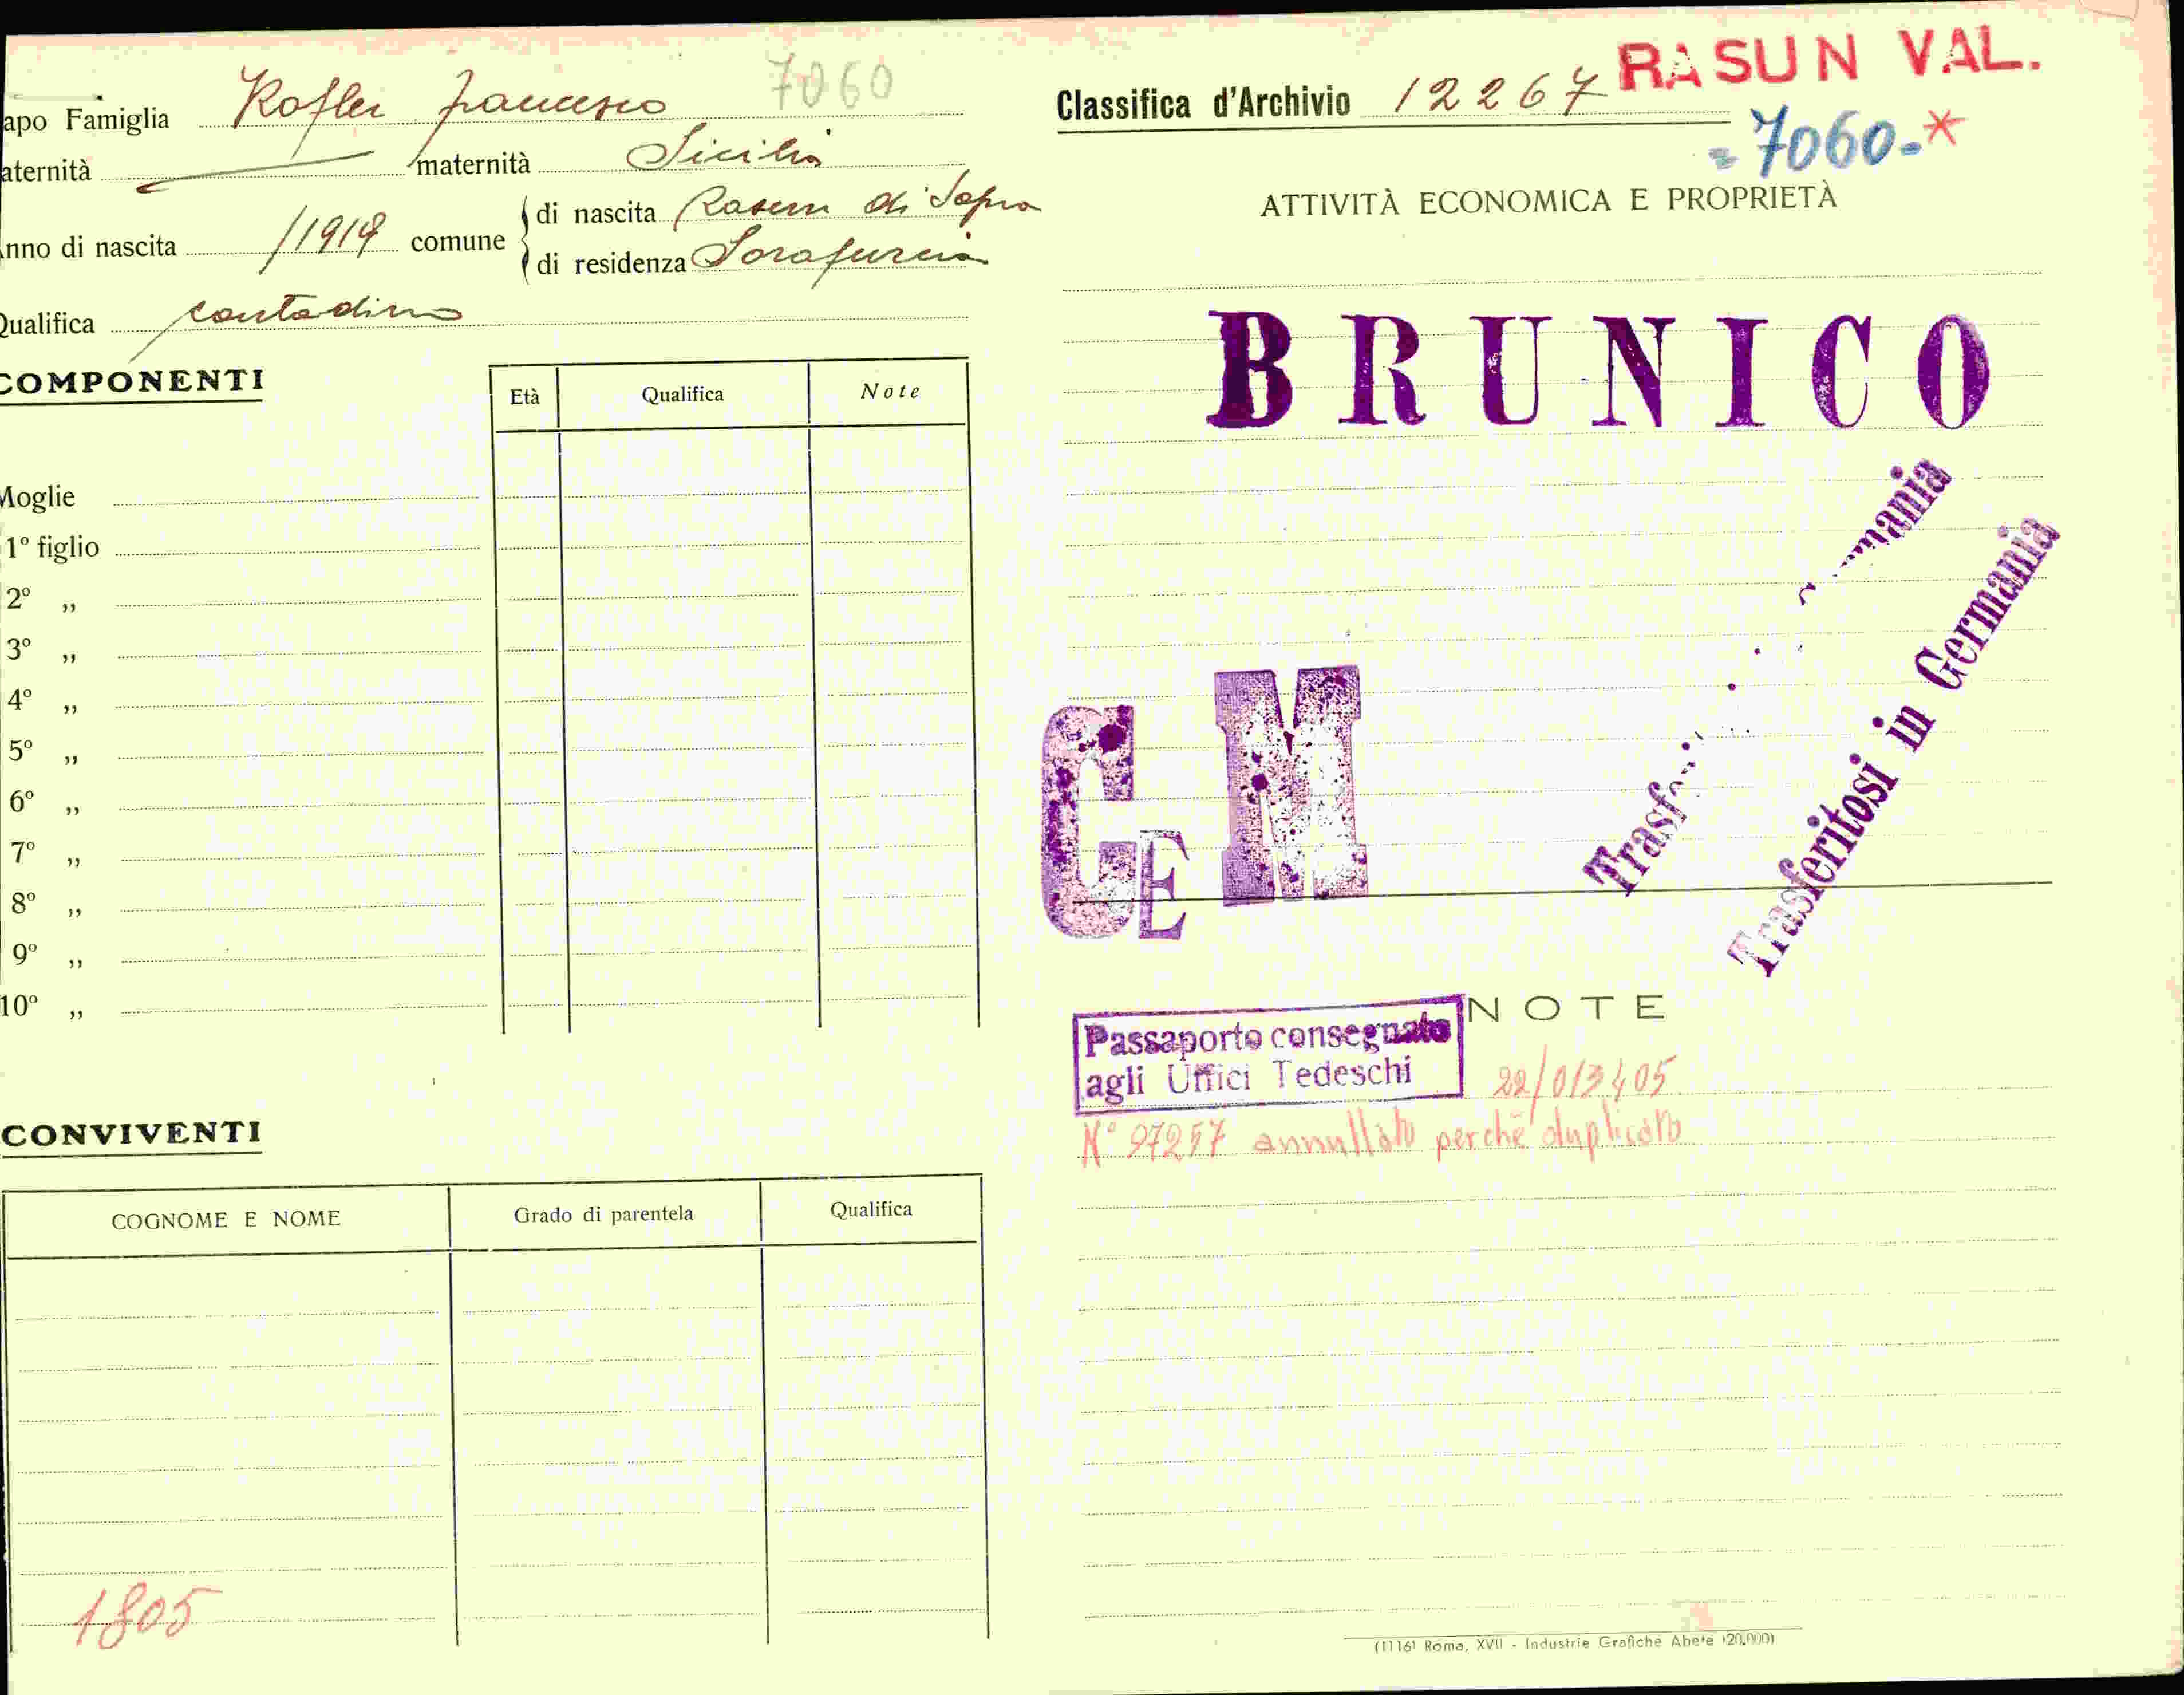 7060
apo Famiglia Kofler Francesco
aternità maternità Sicilia
nno di nascita /1919 comune di nascita Rasun di Sopra
di residenza Sorafurcia
Qualifica contadino
COMPONENTI
Età Qualifica Note
Moglie
1º figlio
2º ,,
3º ,,
4º ,,
5º ,,
6º ,,
7º ,,
8º ,,
9º ,,
10º ,,
CONVIVENTI
COGNOME E NOME Grado di parentela Qualifica
1805
RASUN VAL.
Classifica d'Archivio 12267
= 7060-*
ATTIVITÀ ECONOMICA E PROPRIETÀ
BRUNICO
Trasferitosi in Germania
G E M
NOTE
Passaporto consegnato
agli Uffici Tedeschi
N° 97257 annullato perchè duplicato
(1116) Roma, XVII - Industrie Grafiche Abete (20.000)